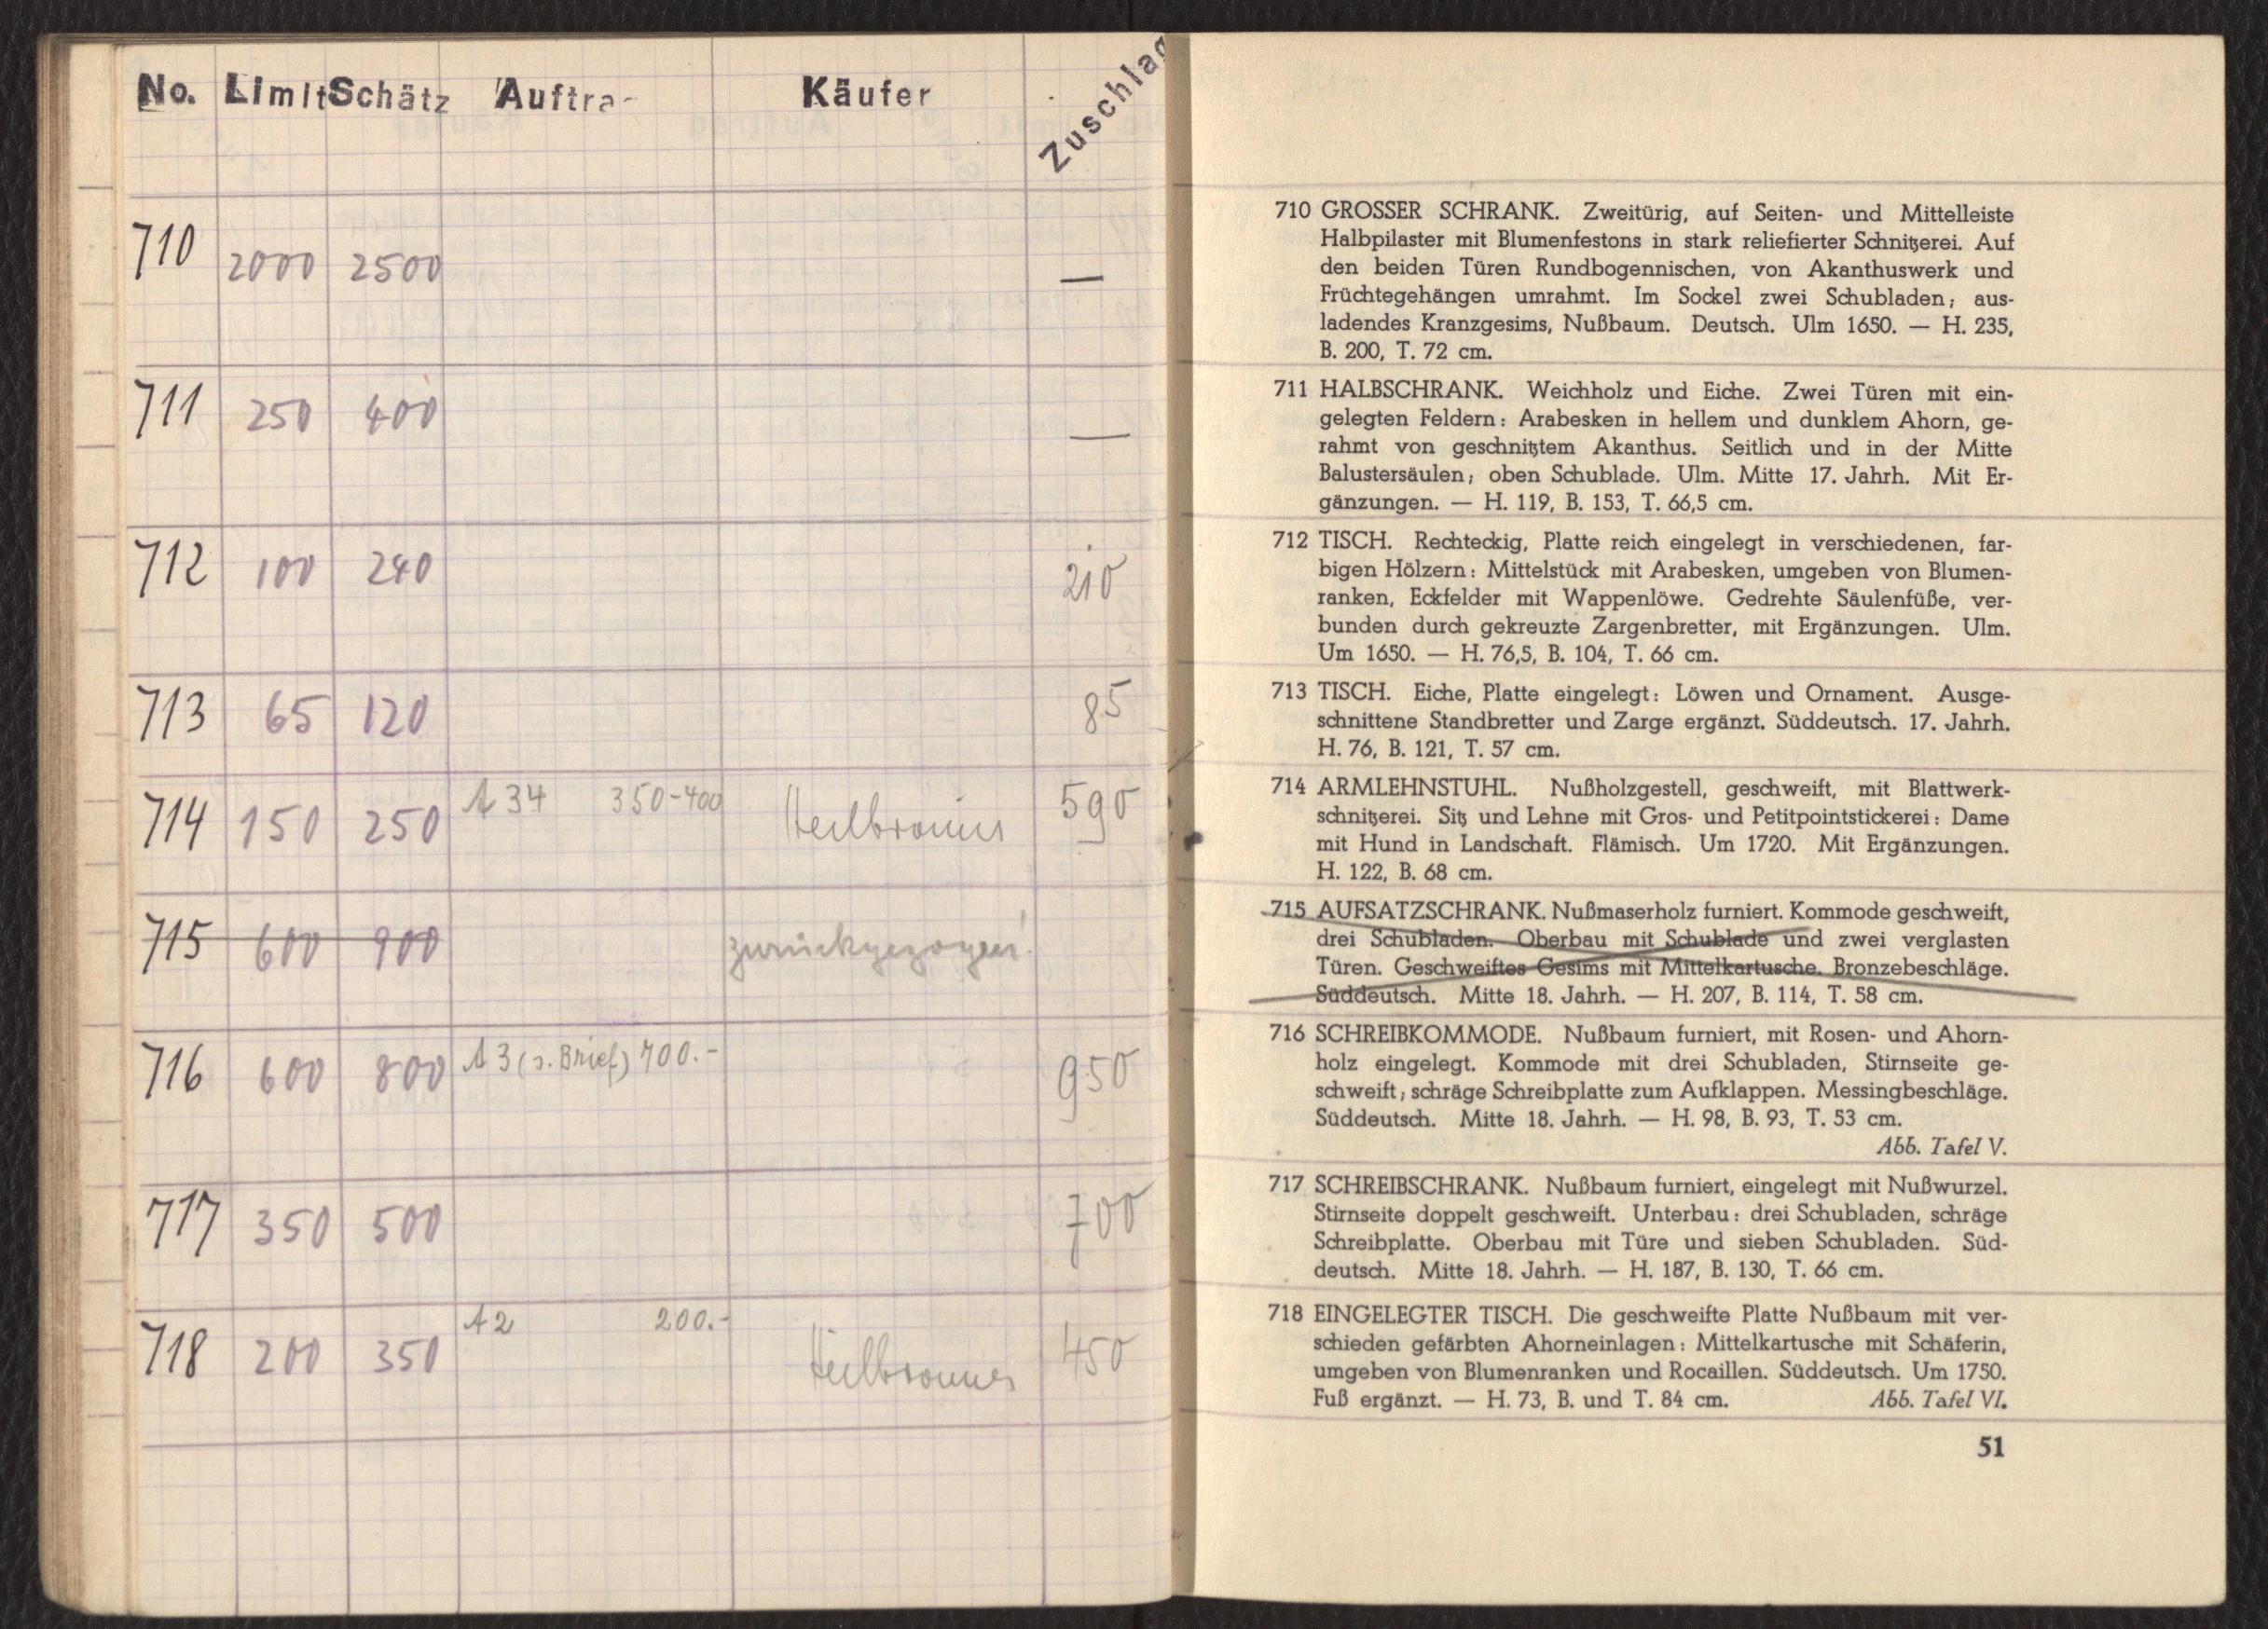 No. Limit Schätz Auftra- Käufer Zuschlag
710 2000 2500 —
711 250 400 —
712 100 240 210
713 65 120 85
714 150 250 A 34 350-400 Heilbronner 590
715 600 900 zurückgezogen!
716 600 800 A 3 (s. Brief) 700.- 950
717 350 500 700
718 200 350 A 2 200.- Heilbronner 450
710 GROSSER SCHRANK. Zweitürig, auf Seiten- und Mittelleiste
Halbpilaster mit Blumenfestons in stark reliefierter Schnitzerei. Auf
den beiden Türen Rundbogennischen, von Akanthuswerk und
Früchtegehängen umrahmt. Im Sockel zwei Schubladen; aus-
ladendes Kranzgesims, Nußbaum. Deutsch. Ulm 1650. — H. 235,
B. 200, T. 72 cm.
711 HALBSCHRANK. Weichholz und Eiche. Zwei Türen mit ein-
gelegten Feldern: Arabesken in hellem und dunklem Ahorn, ge-
rahmt von geschnitztem Akanthus. Seitlich und in der Mitte
Balustersäulen; oben Schublade. Ulm. Mitte 17. Jahrh. Mit Er-
gänzungen. — H. 119, B. 153, T. 66,5 cm.
712 TISCH. Rechteckig, Platte reich eingelegt in verschiedenen, far-
bigen Hölzern: Mittelstück mit Arabesken, umgeben von Blumen-
ranken, Eckfelder mit Wappenlöwe. Gedrehte Säulenfüße, ver-
bunden durch gekreuzte Zargenbretter, mit Ergänzungen. Ulm.
Um 1650. — H. 76,5, B. 104, T. 66 cm.
713 TISCH. Eiche, Platte eingelegt: Löwen und Ornament. Ausge-
schnittene Standbretter und Zarge ergänzt. Süddeutsch. 17. Jahrh.
H. 76, B. 121, T. 57 cm.
714 ARMLEHNSTUHL. Nußholzgestell, geschweift, mit Blattwerk-
schnitzerei. Sitz und Lehne mit Gros- und Petitpointstickerei: Dame
mit Hund in Landschaft. Flämisch. Um 1720. Mit Ergänzungen.
H. 122, B. 68 cm.
715 AUFSATZSCHRANK. Nußmaserholz furniert. Kommode geschweift,
drei Schubladen. Oberbau mit Schublade und zwei verglasten
Türen. Geschweiftes Gesims mit Mittelkartusche. Bronzebeschläge.
Süddeutsch. Mitte 18. Jahrh. — H. 207, B. 114, T. 58 cm.
716 SCHREIBKOMMODE. Nußbaum furniert, mit Rosen- und Ahorn-
holz eingelegt. Kommode mit drei Schubladen, Stirnseite ge-
schweift; schräge Schreibplatte zum Aufklappen. Messingbeschläge.
Süddeutsch. Mitte 18. Jahrh. — H. 98, B. 93, T. 53 cm.
Abb. Tafel V.
717 SCHREIBSCHRANK. Nußbaum furniert, eingelegt mit Nußwurzel.
Stirnseite doppelt geschweift. Unterbau: drei Schubladen, schräge
Schreibplatte. Oberbau mit Türe und sieben Schubladen. Süd-
deutsch. Mitte 18. Jahrh. — H. 187, B. 130, T. 66 cm.
718 EINGELEGTER TISCH. Die geschweifte Platte Nußbaum mit ver-
schieden gefärbten Ahorneinlagen: Mittelkartusche mit Schäferin,
umgeben von Blumenranken und Rocaillen. Süddeutsch. Um 1750.
Fuß ergänzt. — H. 73, B. und T. 84 cm. Abb. Tafel VI.
51